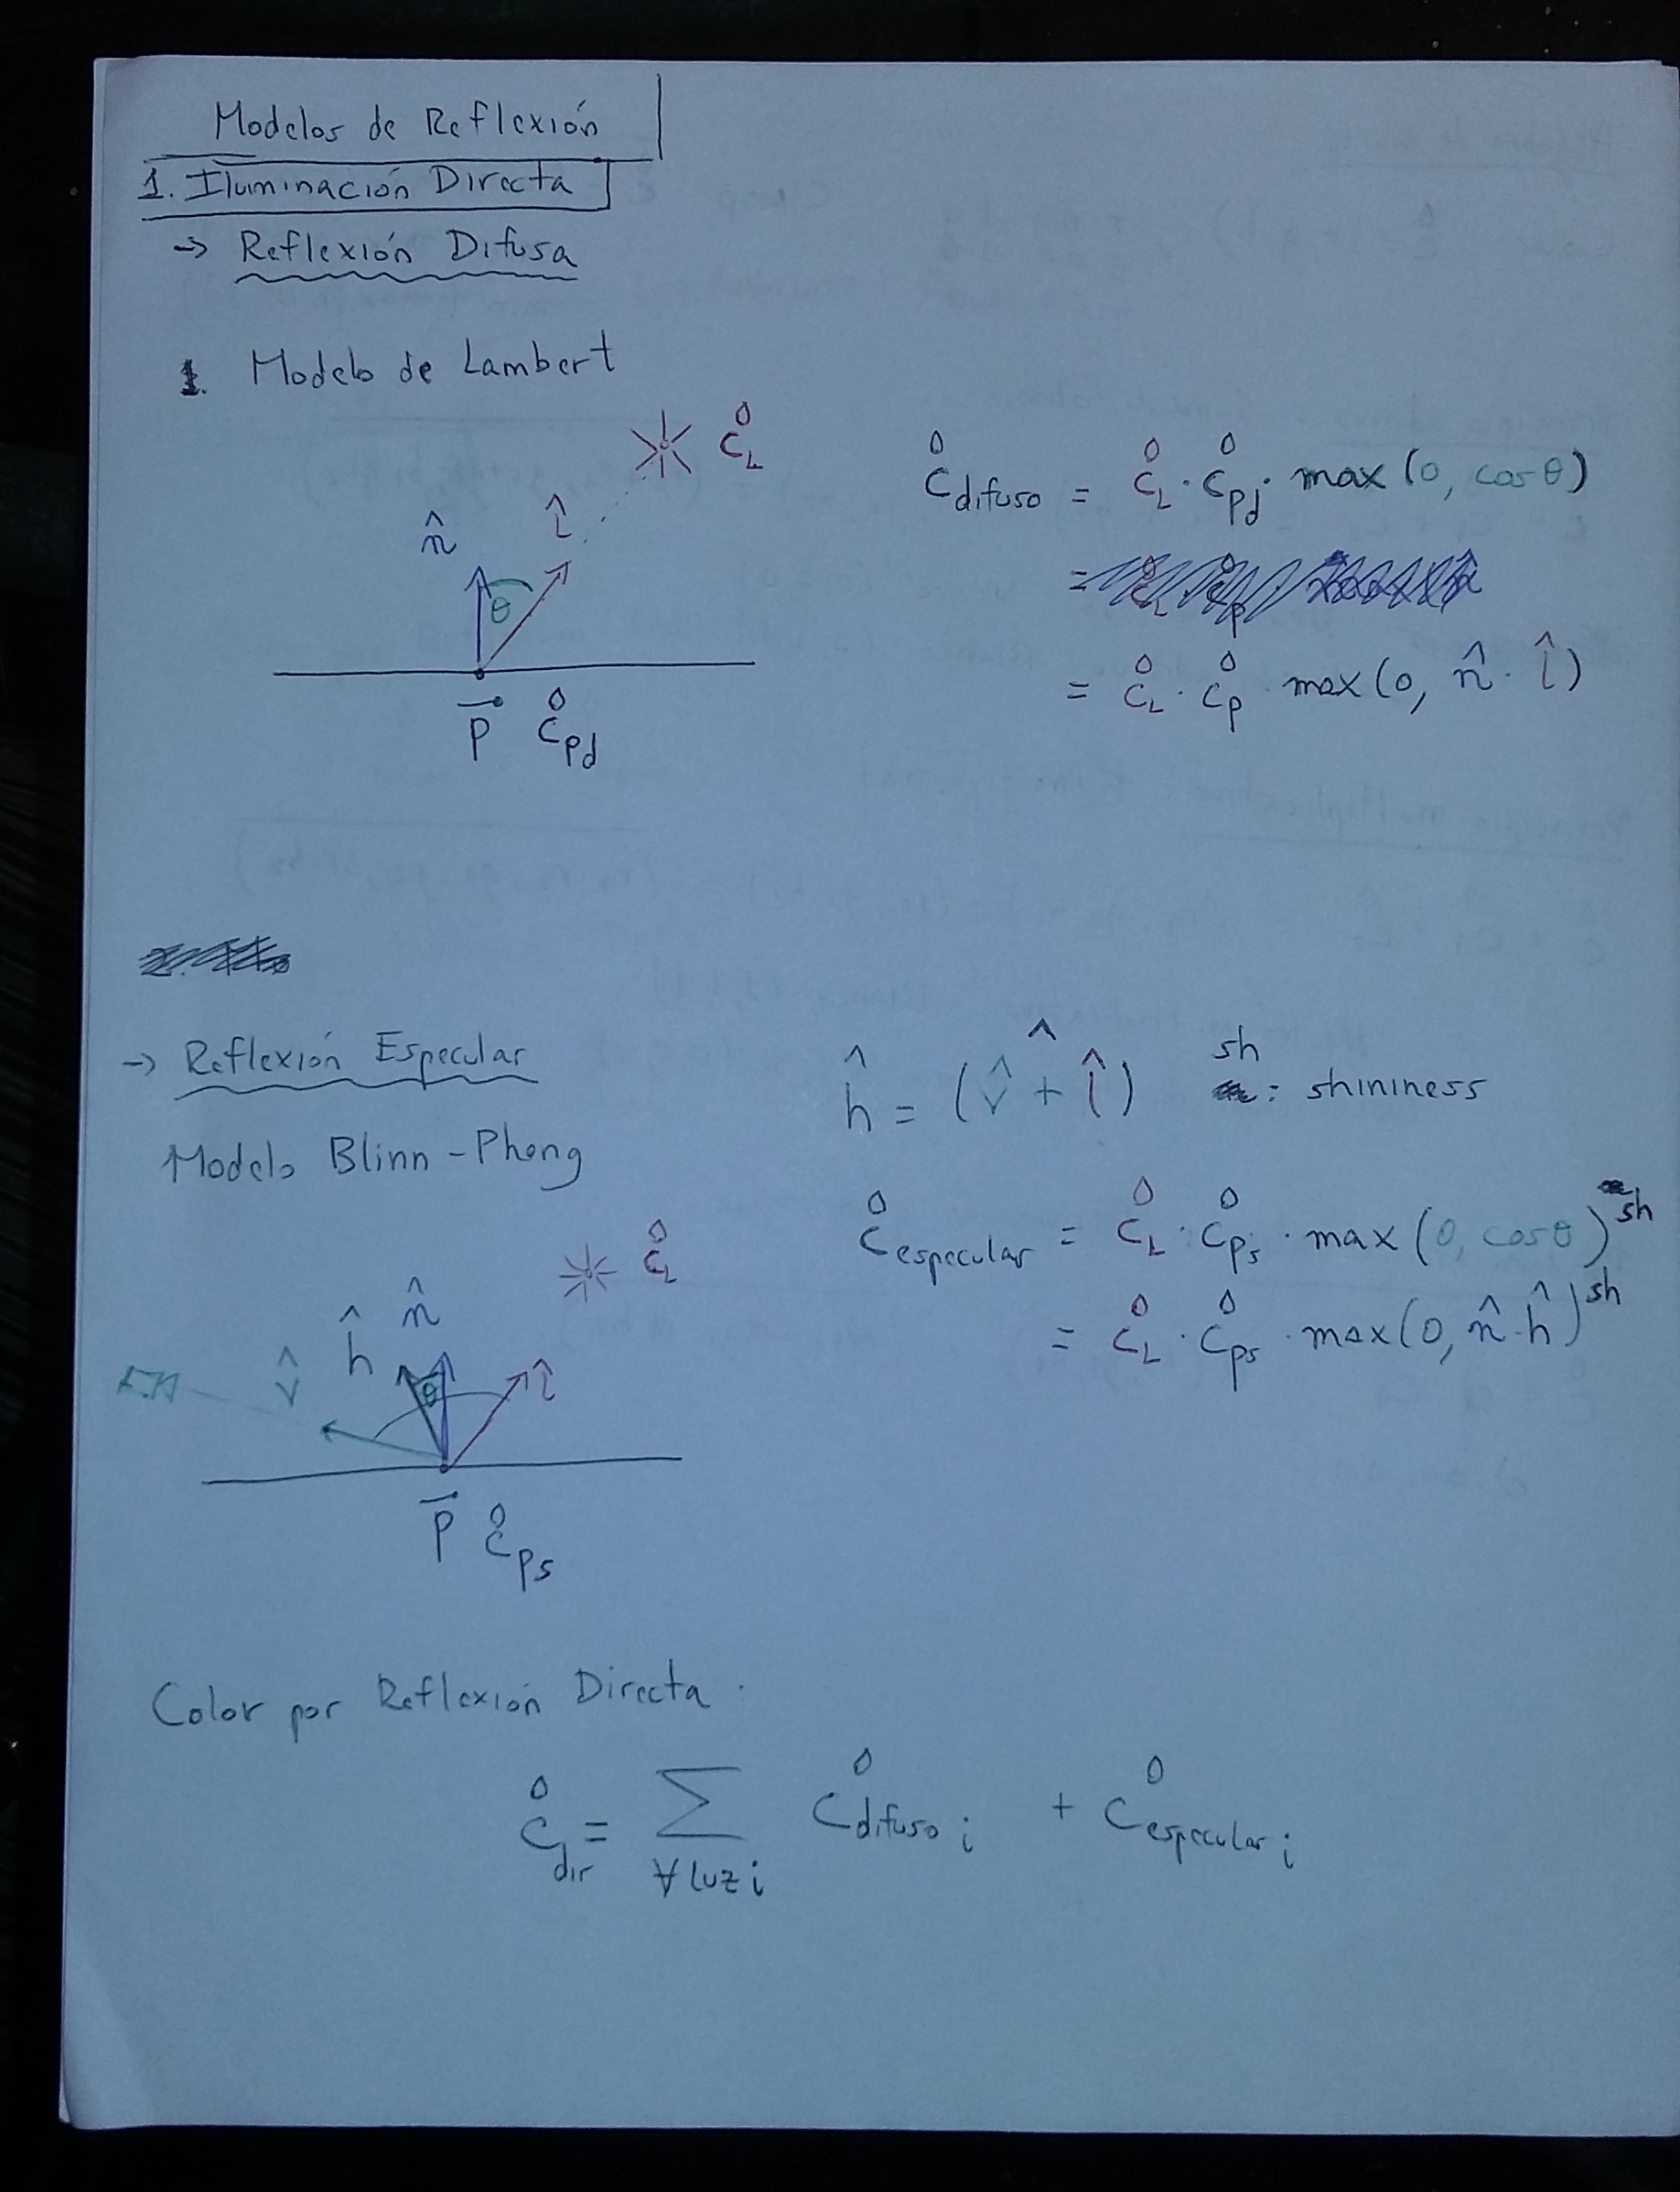 Modelos de Reflexión
1. Iluminación Directa
→ Reflexión Difusa
1. Modelo de Lambert
C̊_L
n̂ l̂
θ
p⃗ C̊_pd
C̊_difuso = C̊_L · C̊_pd · max(0, cos θ)
= C̊_L · C̊_p max(0, n̂ · l̂)
→ Reflexión Especular
Modelo Blinn-Phong
ĥ = (v̂ + l̂)^ sh : shininess
C̊_especular = C̊_L · C̊_ps · max(0, cos θ)^sh
= C̊_L · C̊_ps · max(0, n̂ · ĥ)^sh
C̊_L
v̂ ĥ n̂ l̂
θ
p⃗ C̊_ps
Color por Reflexión Directa.
C̊_dir = ∑ C̊_difuso i + C̊_especular i
∀ luz i